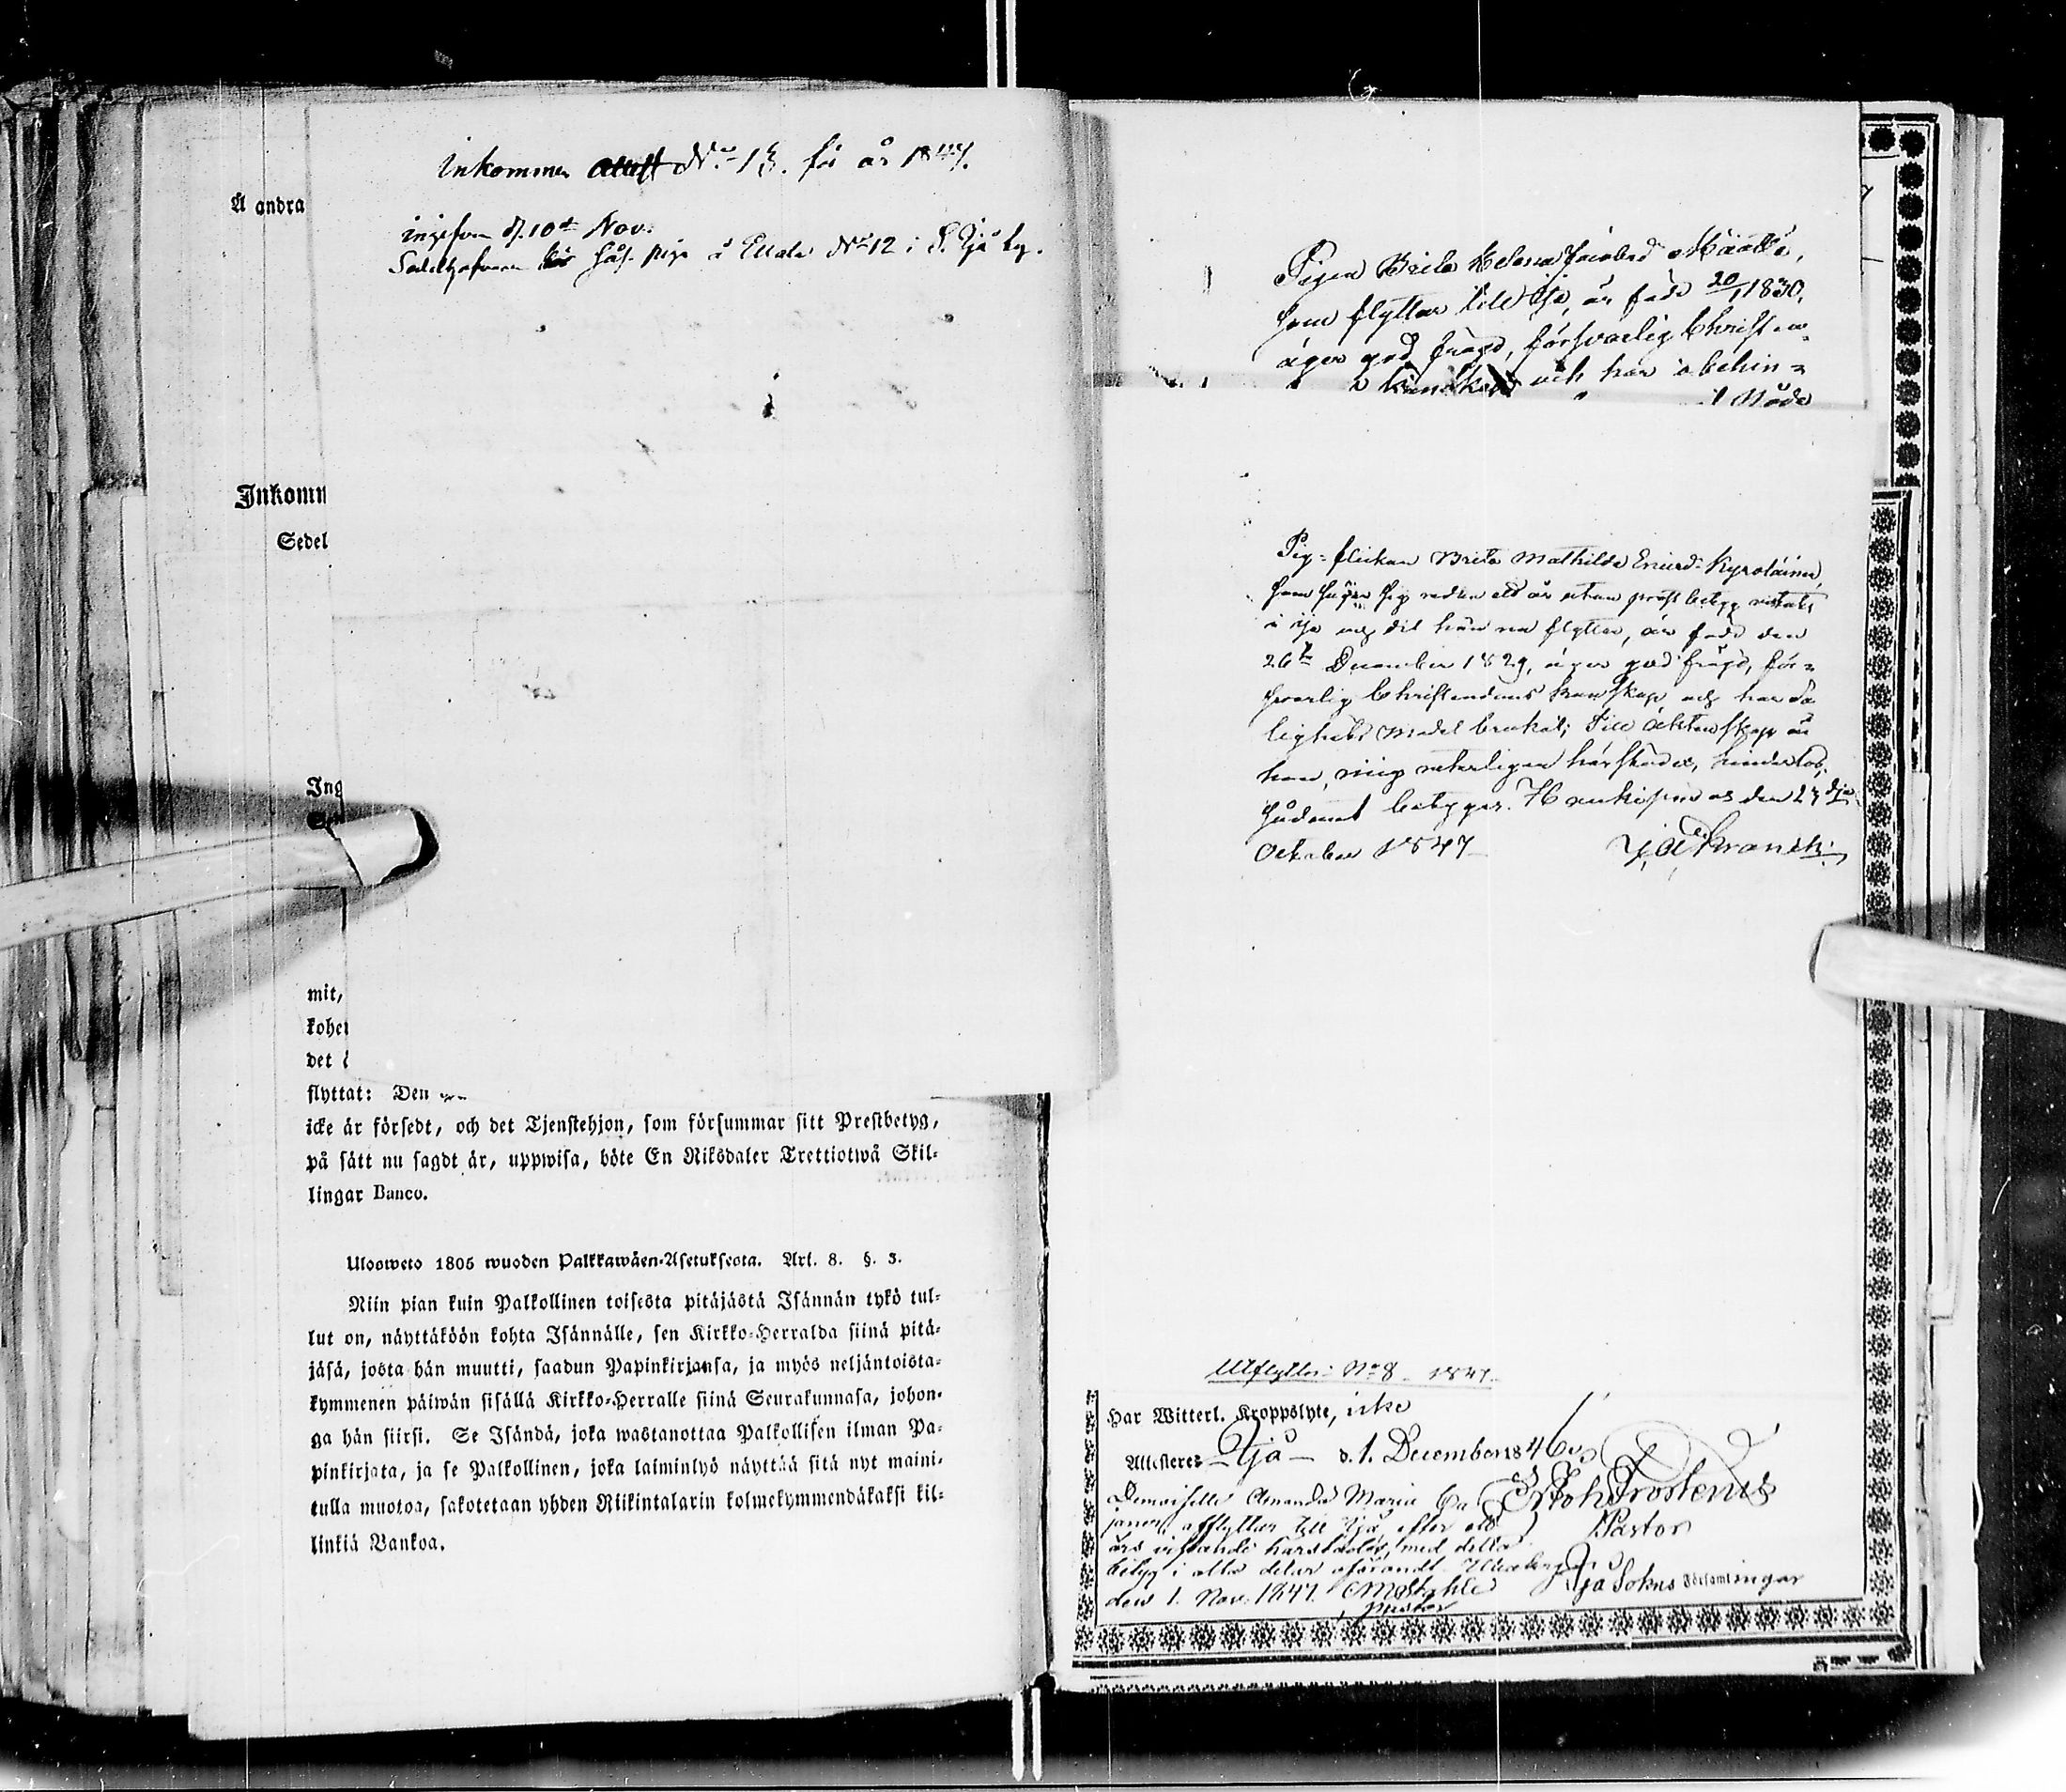 Inkommen attest No 13. för år 1847.
Å andra
ingifven d. 10de Nov.
Sedelhafvaren här piga å No 12 i S. Ijå by.
Inkomm
Sedel
Ing
mit,
kohet
det
flyttat: Den
icke är försedt, och det Tjenstehjon, som försummar sitt Prestbetyg,
på sätt nu sagdt är, uppwisa, böte En Riksdaler Trettiotwå Skil-
lingar Banco.
Ulosweto 1805 wuoden Palkkawäen-Asetuksesta. Art. 8. §. 3.
Niin pian kuin Palkollinen toisesta pitäjästä Isännän tykö tul-
lut on, näyttäköön kohta Isännälle, sen Kirkko-Herralda siinä pitä-
jäsä, josta hän muutti, saadun Papinkirjansa, ja myös neljäntoista-
kymmenen päiwän sisällä Kirkko-Herralle siinä Seurakunnasa, johon-
ga hän siirsi. Se Isändä, joka wastanottaa Palkollisen ilman Pa-
pinkirjata, ja se Palkollinen, joka laiminlyö näyttää sitä nyt maini-
tulla muotoa, sakotetaan yhden Riikintalarin kolmekymmendäkaksi kil-
linkiä Bankoa.
Pigan Brita Helena Jacobsd. Määttä,
som flyttar till Ijo, är född 20/1 1830,
äger god frägd, försvarlig Christen-
kunskap och har obehin-
Pig-flickan Brita Mathilda Ericsd. Kyroläinen,
som säger sig redan ett år utan prestbetyg vistats
i Ijo och dit härmed flyttar, är född den
26te December 1829, äger god frägd, för-
svarlig Christendoms kunskap och har sa-
lighets medel brukat; Till äktenskap är
hon, mig veterligen härstädes, hinderlös,
sådant betygar. Haukipudas den 27dje
October 1847
Utflyttn: No 8 1847.
Har Witterl. Kroppslyte, icke
Attesteres Ijå d. 1. December 1846.
Demoiselle Amanda Maria Ca
janer, afflyttar till Ijå, efter ett
års vistande härstädes, med detta
betyg i alla delar oförändt. Uleåborg
den 1. Nov. 1847.
Pastor
Pastor
Ijå Sokns Församlingar